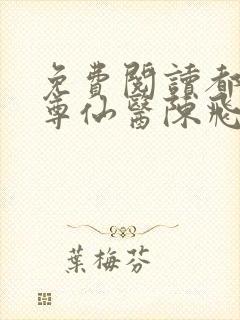 免費閱讀都
尊仙醫陳飛
葉梅芬